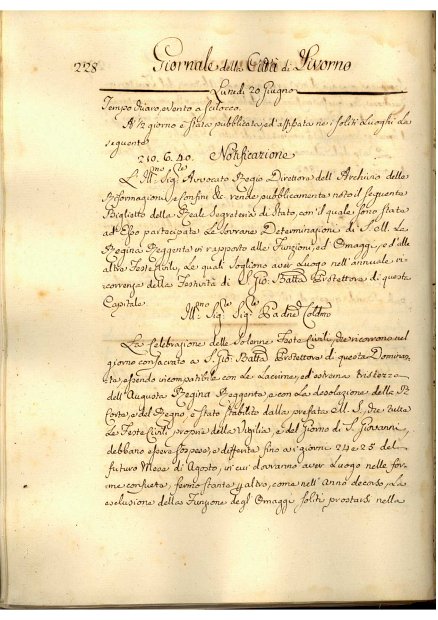 228
Giornale della Città di Livorno
Lunedì 20 Giugno
Tempo vario, e vento a scilocco.
A ½ giorno è stata pubblicata, ed affissa nei soliti Luoghi La
seguente
210. 6. 40. Notificazione
L'Ill.mo Sig.re Avvocato Regio Direttore dell'Archivio delle
Riformagioni, e Confini &c. rende pubblicamente noto il seguente
Biglietto della Reale Segreteria di Stato, con il quale sono state
ad Esso partecipate Le Sovrane Determinazioni di S. M. La
Regina Reggente in rapporto alle Funzioni, ed Omaggi, ed alle
altre Feste Civili, Le quali sogliono aver Luogo nell'annuale ri-
correnza della Festività di S. Gio: Batta Protettore di questa
Capitale.
Ill.mo Sig.re Sig.re Padne Colmo
La Celebrazione delle solenni Feste Civili, che ricorrono nel
giorno consacrato a S. Gio: Batta Protettore di questa Dominan-
te, essendo incompatibile con Le Lacrime, ed estrema tristezza
dell'Augusta Regina Reggente, e con La desolazione della R.
Corte, e del Regno, è stato stabilito dalla prefata M. S., che tutte
Le Feste Civili proprie della Vigilia, e del Giorno di S. Giovanni,
debbano essere sospese, e differite fino a' giorni 24 e 25 del
futuro Mese di Agosto, in cui dovranno aver Luogo nelle for-
me consuete, fermo stante altro, come nell'Anno decorso, La
esclusione della Funzione degl'Omaggi soliti prestarsi nella